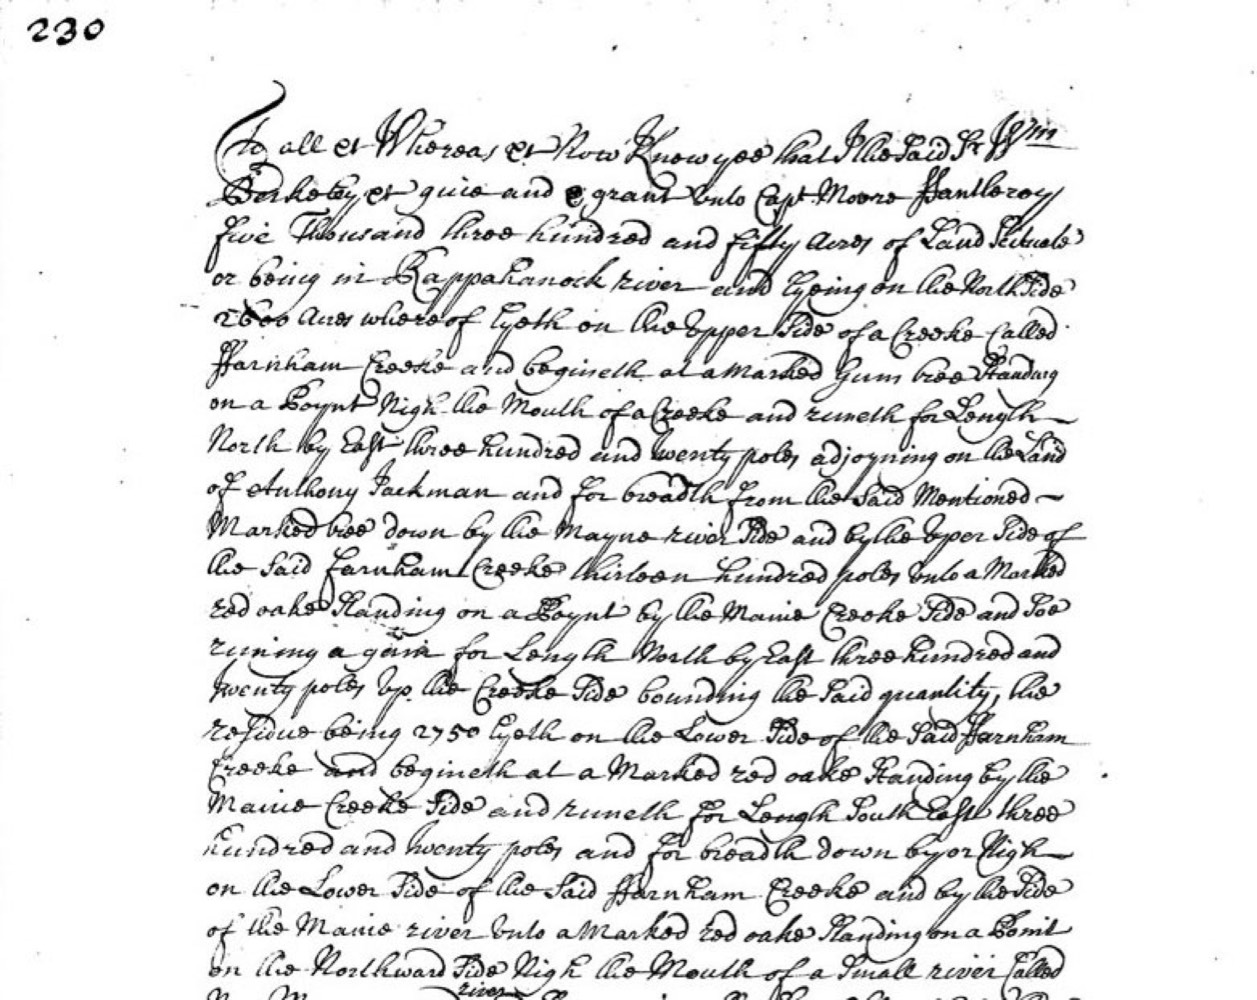 230
To all et Whereas et Now Know yee that I the Said Sr Wm
Berkeley et give and grant unto Capt Moore ffantleroy
five Thousand three hundred and fifty Acres of Land Scituate
or being in Rappahanock river and Lyeing on the North Side
2600 Acres where of Lyeth on the Upper Side of a Creeke Called
ffarnham Creeke and begineth at a Marked Gum tree Standing
on a Poynt Nigh the Mouth of a Creeke and runeth for Length
North by East three hundred and twenty poles adjoyning on the Land
of Anthony Jackman and for breadth from the Said Mentioned
Marked tree down by the Mayne river Side and by the Uper Side of
the Said farnham Creeke thirteen hundred poles unto a Marked
red oake Standing on a Poynt by the Maine Creeke Side and Soe
runing a gain for Length North by East three hundred and
twenty poles Up the Creeke Side bounding the Said quantity, the
residue being 2750 Lyeth on the Lower Side of the Said ffarnham
Creeke and begineth at a Marked red oake Standing by the
Maine Creeke Side and runeth for Length South East three
hundred and twenty poles and for breadth down by or Nigh
on the Lower Side of the Said ffarnham Creeke and by the Side
of the Maine river unto a Marked red oake Standing on a Point
on the Northward Side Nigh the Mouth of a Small river Called
river